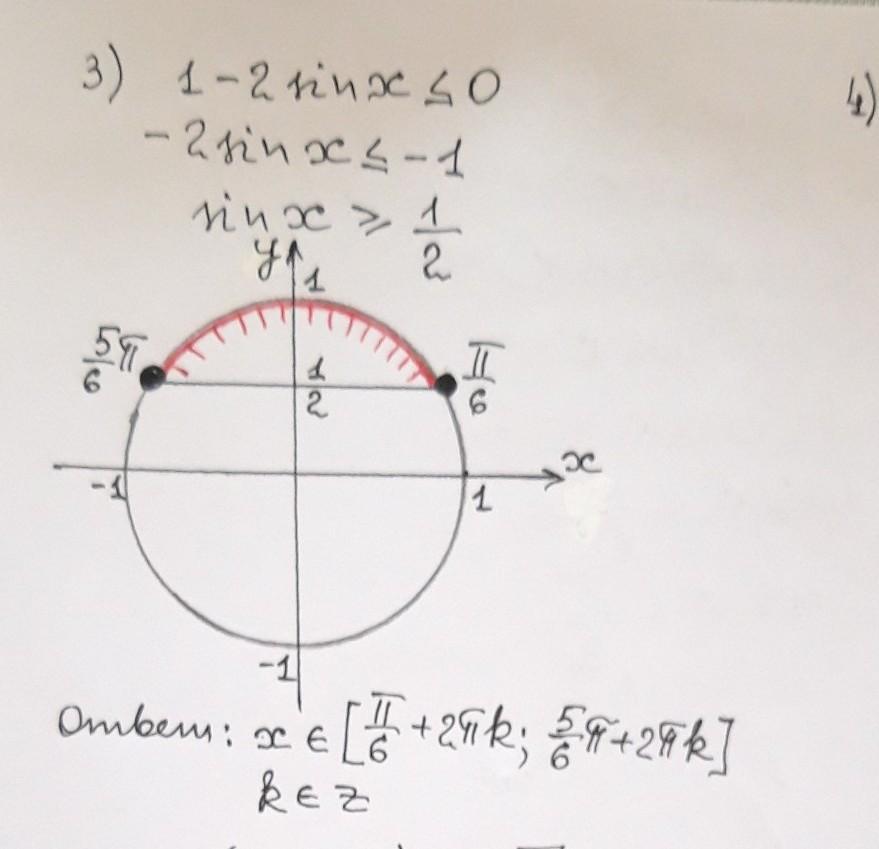 3) 1-2sinx ≤ 0
4)
-2sin x ≤ -1
sin x ⩾ 1/2
y
1
5/6 π
π/6
1/2
x
-1
1
-1
Ответ: x ∈ [π/6 + 2πk; 5/6 π + 2πk]
k ∈ z